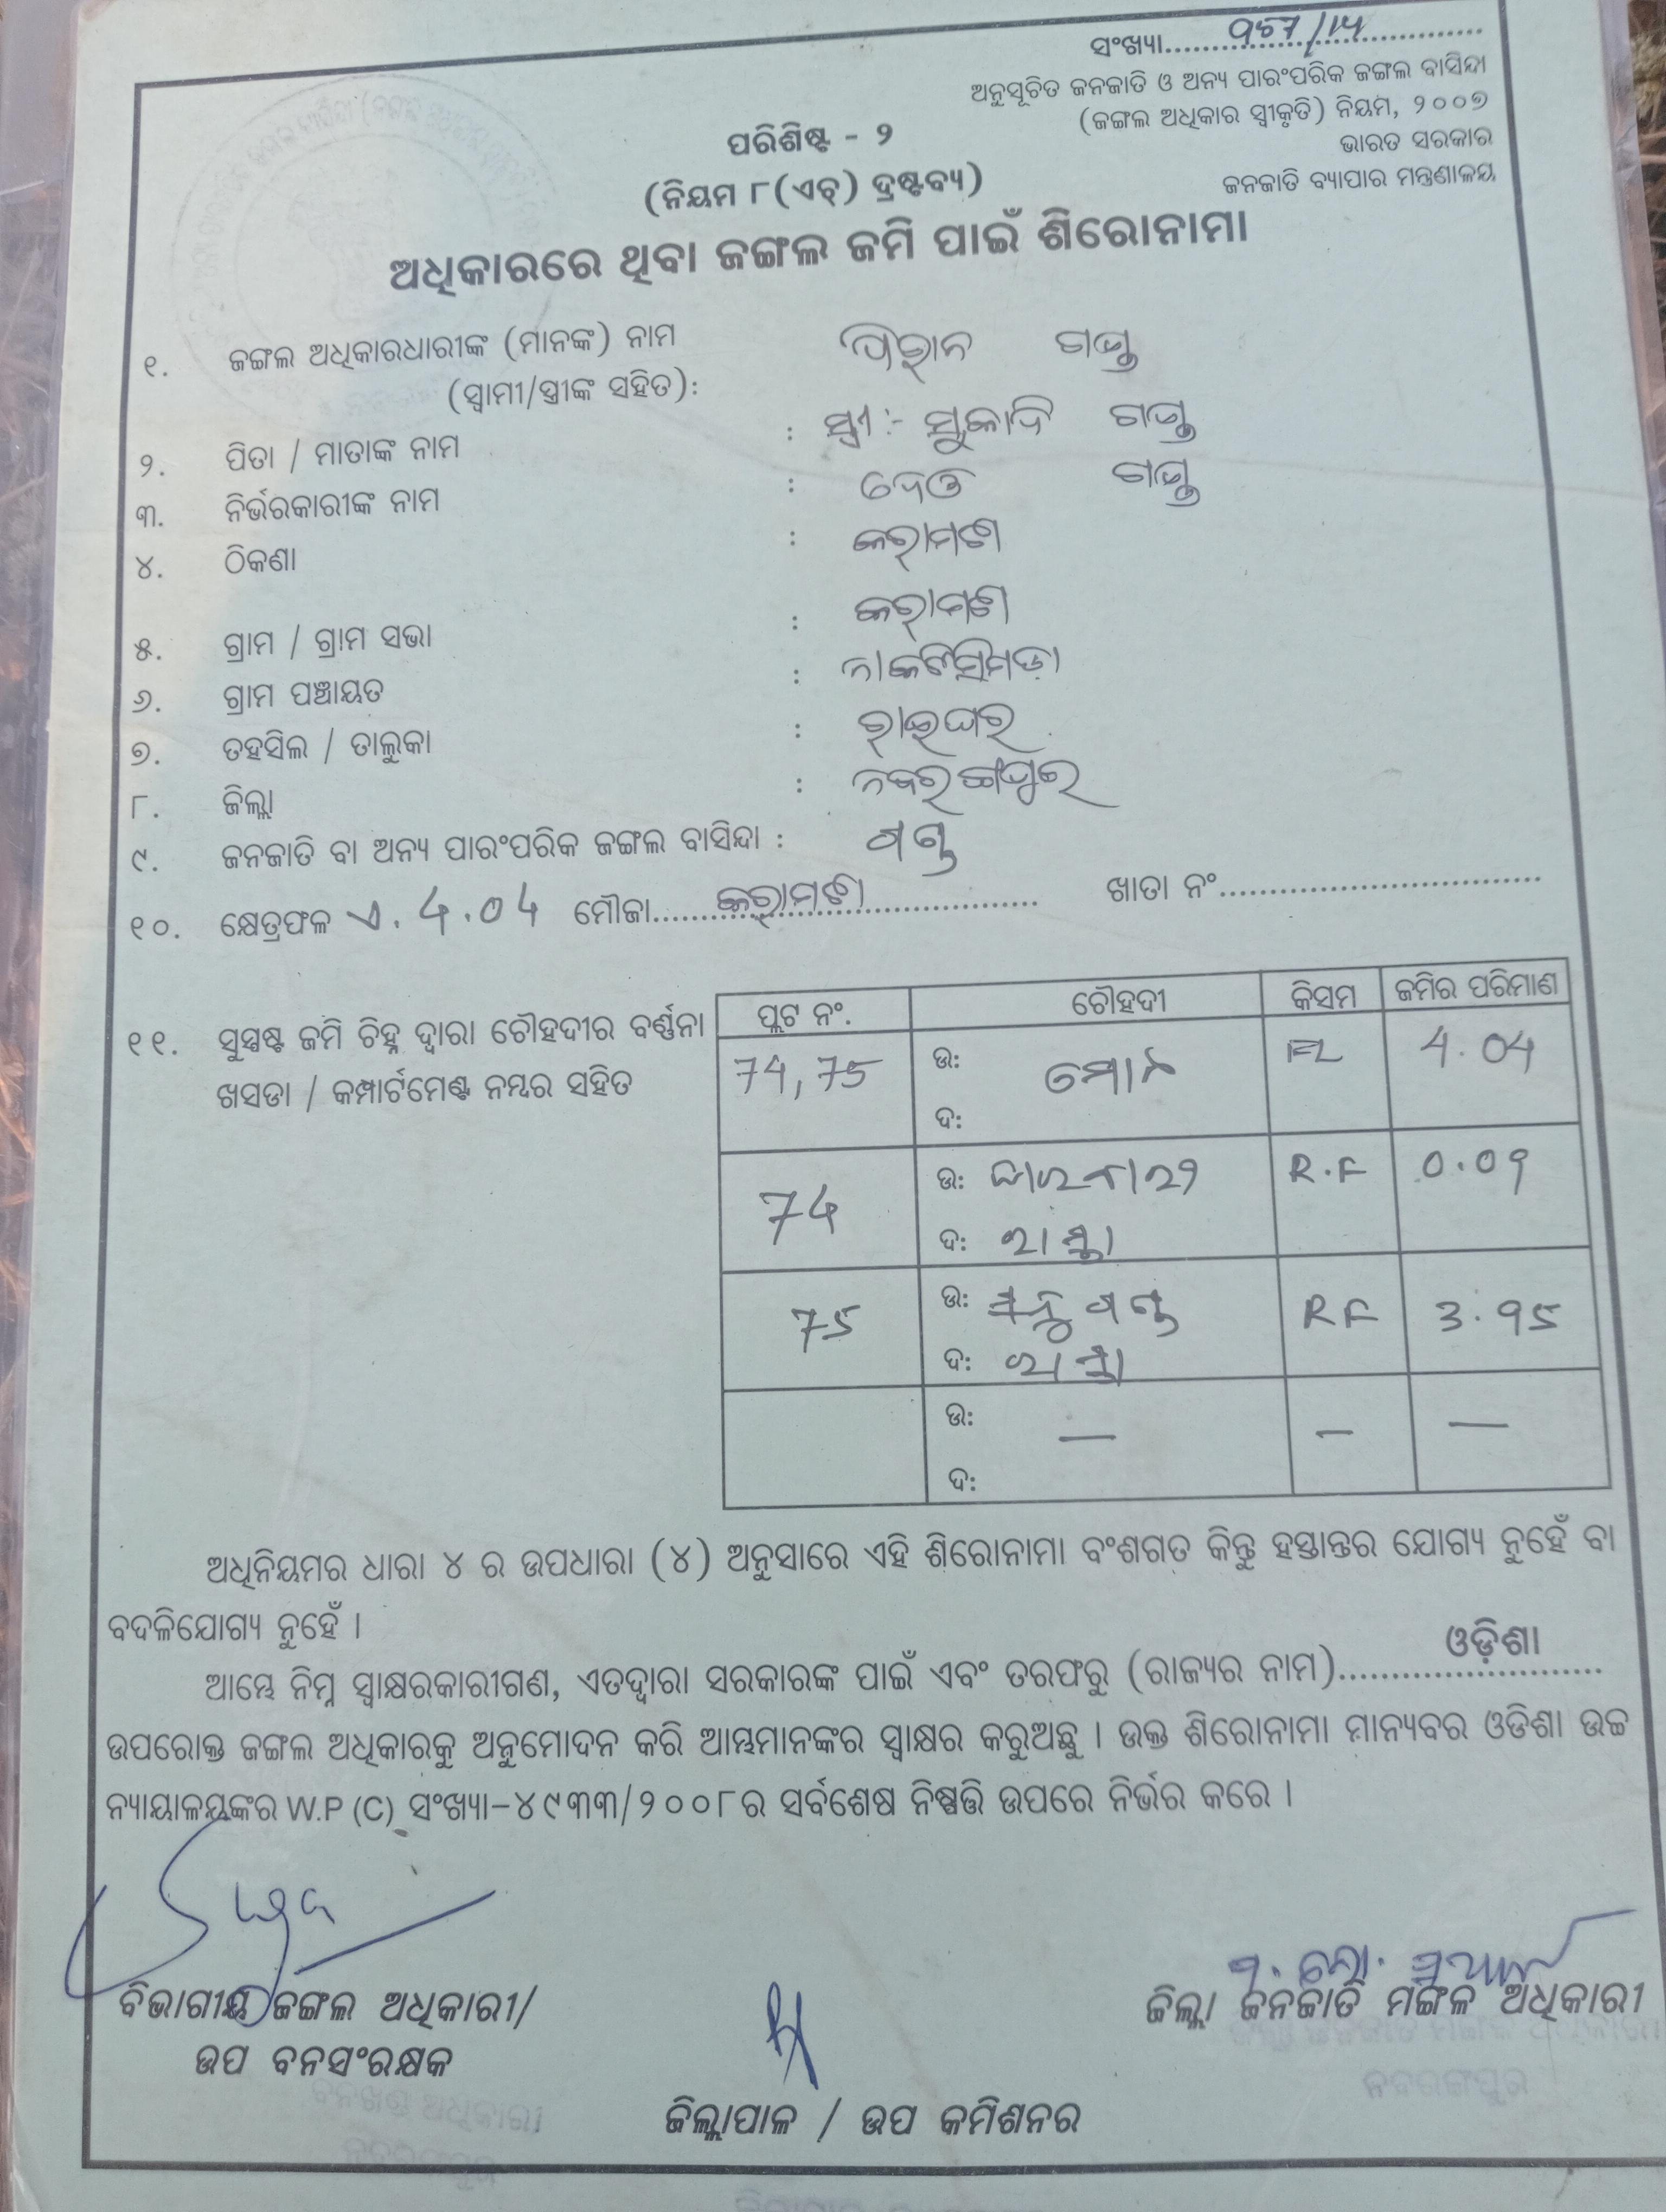 ସଂଖ୍ୟା
ଅନୁସୂଚିତ ଜନଜାତି ଓ ଅନ୍ୟ ପାରଂପରିକ ଜଙ୍ଗଲ ବାସିନ୍ଦା
(ଜଙ୍ଗଲ ଅଧିକାର ସ୍ୱୀକୃତି) ନିୟମ, ୨୦୦୭
ଭାରତ ସରକାର
ଜନଜାତି ବ୍ୟାପାର ମନ୍ତ୍ରଣାଳୟ
ପରିଶିଷ୍ଟ - ୨
(ନିୟମ ୮(ଏଚ୍) ଦ୍ରଷ୍ଟବ୍ୟ)
ଅଧିକାରରେ ଥିବା ଜଙ୍ଗଲ ଜମି ପାଇଁ ଶିରୋନାମା
୧. ଜଙ୍ଗଲ ଅଧିକାରଧାରୀଙ୍କ (ମାନଙ୍କ) ନାମ
(ସ୍ୱାମୀ/ସ୍ତ୍ରୀଙ୍କ ସହିତ):
୨. ପିତା / ମାତାଙ୍କ ନାମ : ସ୍ତ୍ରୀ :-
୩. ନିର୍ଭରକାରୀଙ୍କ ନାମ :
୪. ଠିକଣା :
୫. ଗ୍ରାମ / ଗ୍ରାମ ସଭା :
୬. ଗ୍ରାମ ପଞ୍ଚାୟତ :
୭. ତହସିଲ / ତାଲୁକା : ରାଇଘର
୮. ଜିଲ୍ଲା : ନବରଙ୍ଗପୁର
୯. ଜନଜାତି ବା ଅନ୍ୟ ପାରଂପରିକ ଜଙ୍ଗଲ ବାସିନ୍ଦା : ଗଣ୍ଡ
୧୦. କ୍ଷେତ୍ରଫଳ ଏ. 4.04 ମୌଜା ଖାତା ନଂ
୧୧. ସୁସ୍ପଷ୍ଟ ଜମି ଚିହ୍ନ ଦ୍ୱାରା ଚୌହଦୀର ବର୍ଣ୍ଣନା
ଖସଡା / କମ୍ପାର୍ଟମେଣ୍ଟ ନମ୍ବର ସହିତ
ପ୍ଲଟ ନଂ. ଚୌହଦୀ କିସମ ଜମିର ପରିମାଣ
74, 75 ଉ: 4.04
ଦ:
74 ଉ: R.F 0.09
ଦ: ରାସ୍ତା
75 ଉ: RF 3.95
ଦ: ରାସ୍ତା
ଉ: — — —
ଦ:
ଅଧିନିୟମର ଧାରା ୪ ର ଉପଧାରା (୪) ଅନୁସାରେ ଏହି ଶିରୋନାମା ବଂଶଗତ କିନ୍ତୁ ହସ୍ତାନ୍ତର ଯୋଗ୍ୟ ନୁହେଁ ବା
ବଦଳିଯୋଗ୍ୟ ନୁହେଁ ।
ଆମ୍ଭେ ନିମ୍ନ ସ୍ୱାକ୍ଷରକାରୀଗଣ, ଏତଦ୍ୱାରା ସରକାରଙ୍କ ପାଇଁ ଏବଂ ତରଫରୁ (ରାଜ୍ୟର ନାମ) ଓଡ଼ିଶା
ଉପରୋକ୍ତ ଜଙ୍ଗଲ ଅଧିକାରକୁ ଅନୁମୋଦନ କରି ଆମ୍ଭମାନଙ୍କର ସ୍ୱାକ୍ଷର କରୁଅଛୁ । ଉକ୍ତ ଶିରୋନାମା ମାନ୍ୟବର ଓଡିଶା ଉଚ୍ଚ
ନ୍ୟାୟାଳୟଙ୍କର W.P (C) ସଂଖ୍ୟା-୪୯୩୩/୨୦୦୮ର ସର୍ବଶେଷ ନିଷ୍ପତ୍ତି ଉପରେ ନିର୍ଭର କରେ ।
ବିଭାଗୀୟ ଜଙ୍ଗଲ ଅଧିକାରୀ/
ଉପ ବନସଂରକ୍ଷକ
ଜିଲ୍ଲାପାଳ / ଉପ କମିଶନର
ଜିଲ୍ଲା ଜନଜାତି ମଙ୍ଗଳ ଅଧିକାରୀ
ନବରଙ୍ଗପୁର